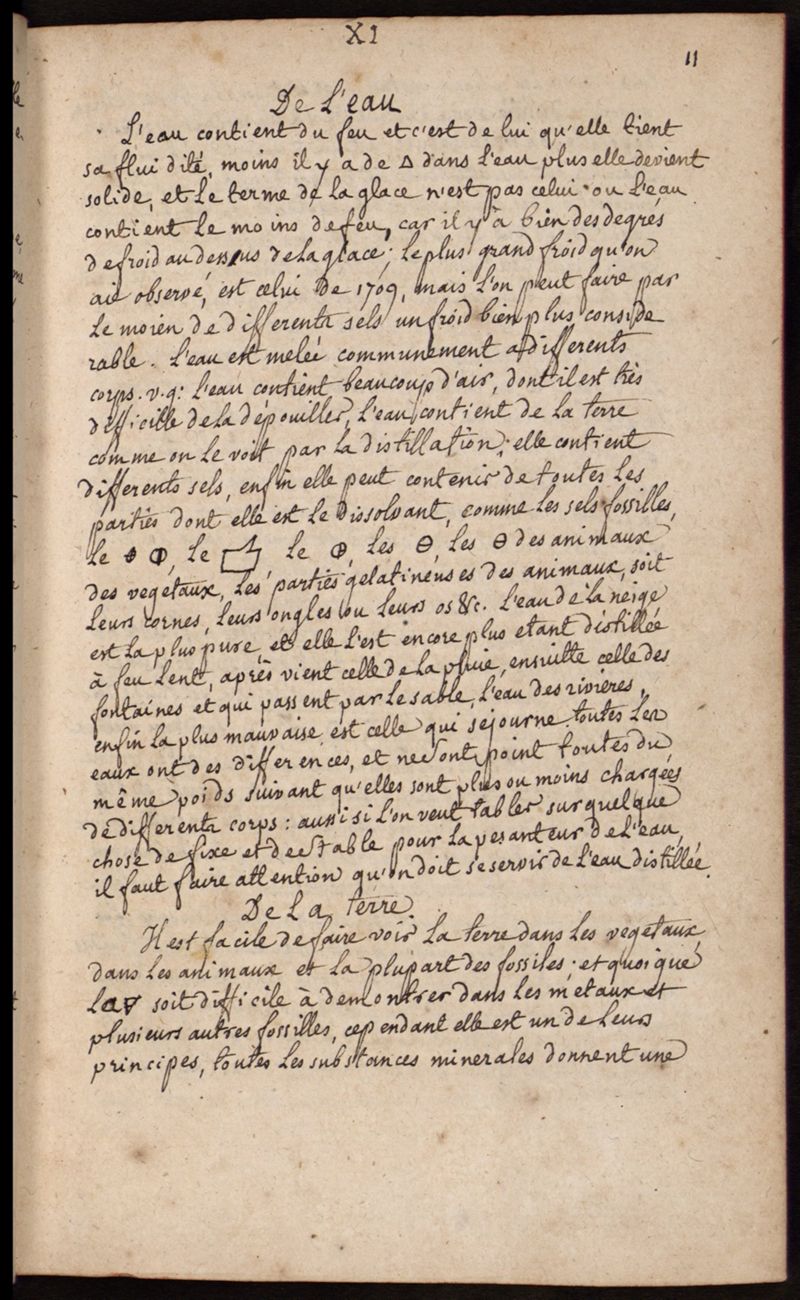 XI
11
De L'eau
L'eau contient du feu et c'est de lui qu'elle tient
sa fluidité, moins il y a de △ dans l'eau plus elle devient
solide, et le terme de la glace n'est pas celui ou l'eau
contient le moins de feu, car il y à bien des degrés
de froid au dessus de la glace; le plus grand froid qu'on
ait observé, est celui de 1709, mais l'on peut faire par
le moien de differents sels un froid bien plus conside
rable. L'eau est melée communement a differents
corps. v.g: l'eau contient beaucoup d'air, dont il est très
difficille de la dépouiller, l'eau contient de la terre
comme on le voit par la distillation; elle contient
differents sels, enfin elle peut contenir de toutes les
parties dont elle est le dissolvant, comme les sels fossilles,
le 🜕, le , le 🜕, les 🜔, les 🜔 des animaux
des vegetaux, les parties gelatineuses des animaux, soit
leurs cornes, leurs ongles ou leurs os &c. L'eau de la neige
est la plus pure, et elle l'est encore plus etant distillée
à feu lent, après vient celle de la pluie, ensuitte celle des
fontaines et qui passent par le sable, l'eau des rivieres,
enfin la plus mauvaise est celle qui sejourne. toutes les
eaux ont des differences, et ne sont point toutes du
même poids suivant qu'elles sont plus ou moins chargées
de differents corps: aussi si l'on veut tabler sur quelque
chose de fixe et de stable pour la pesanteur de l'eau,
il faut faire attention qu'on doit se servir de l'eau distillée.
De La terre
Il est facile de faire voir la terre dans les vegetaux,
dans les animaux et la plupart des fossiles; et quoique
la 🜃 soit difficile à demontrer dans les metaux et
plusieurs autres fossilles, cependant elle est un de leurs
principes, toutes les substances minerales donnent une